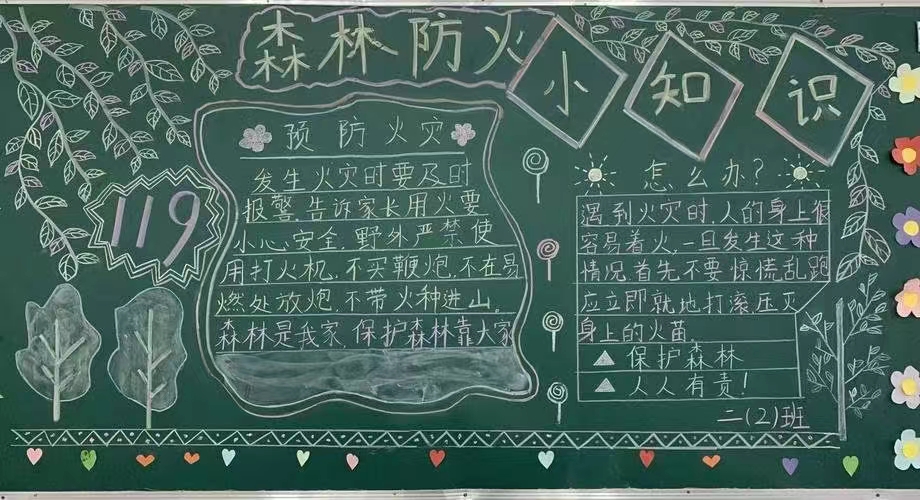 森林防火小知识
119
预防火灾
发生火灾时要及时
报警,告诉家长用火要
小心,安全,野外严禁使
用打火机,不买鞭炮,不在易
燃处放炮,不带火种进山。
森林是我家,保护森林靠大家
怎么办?
遇到火灾时,人的身上很
容易着火,一旦发生这种
情况,首先,不要惊慌乱跑
应立即就地打滚压灭
身上的火苗
保护森林
人人有责!
二(2)班